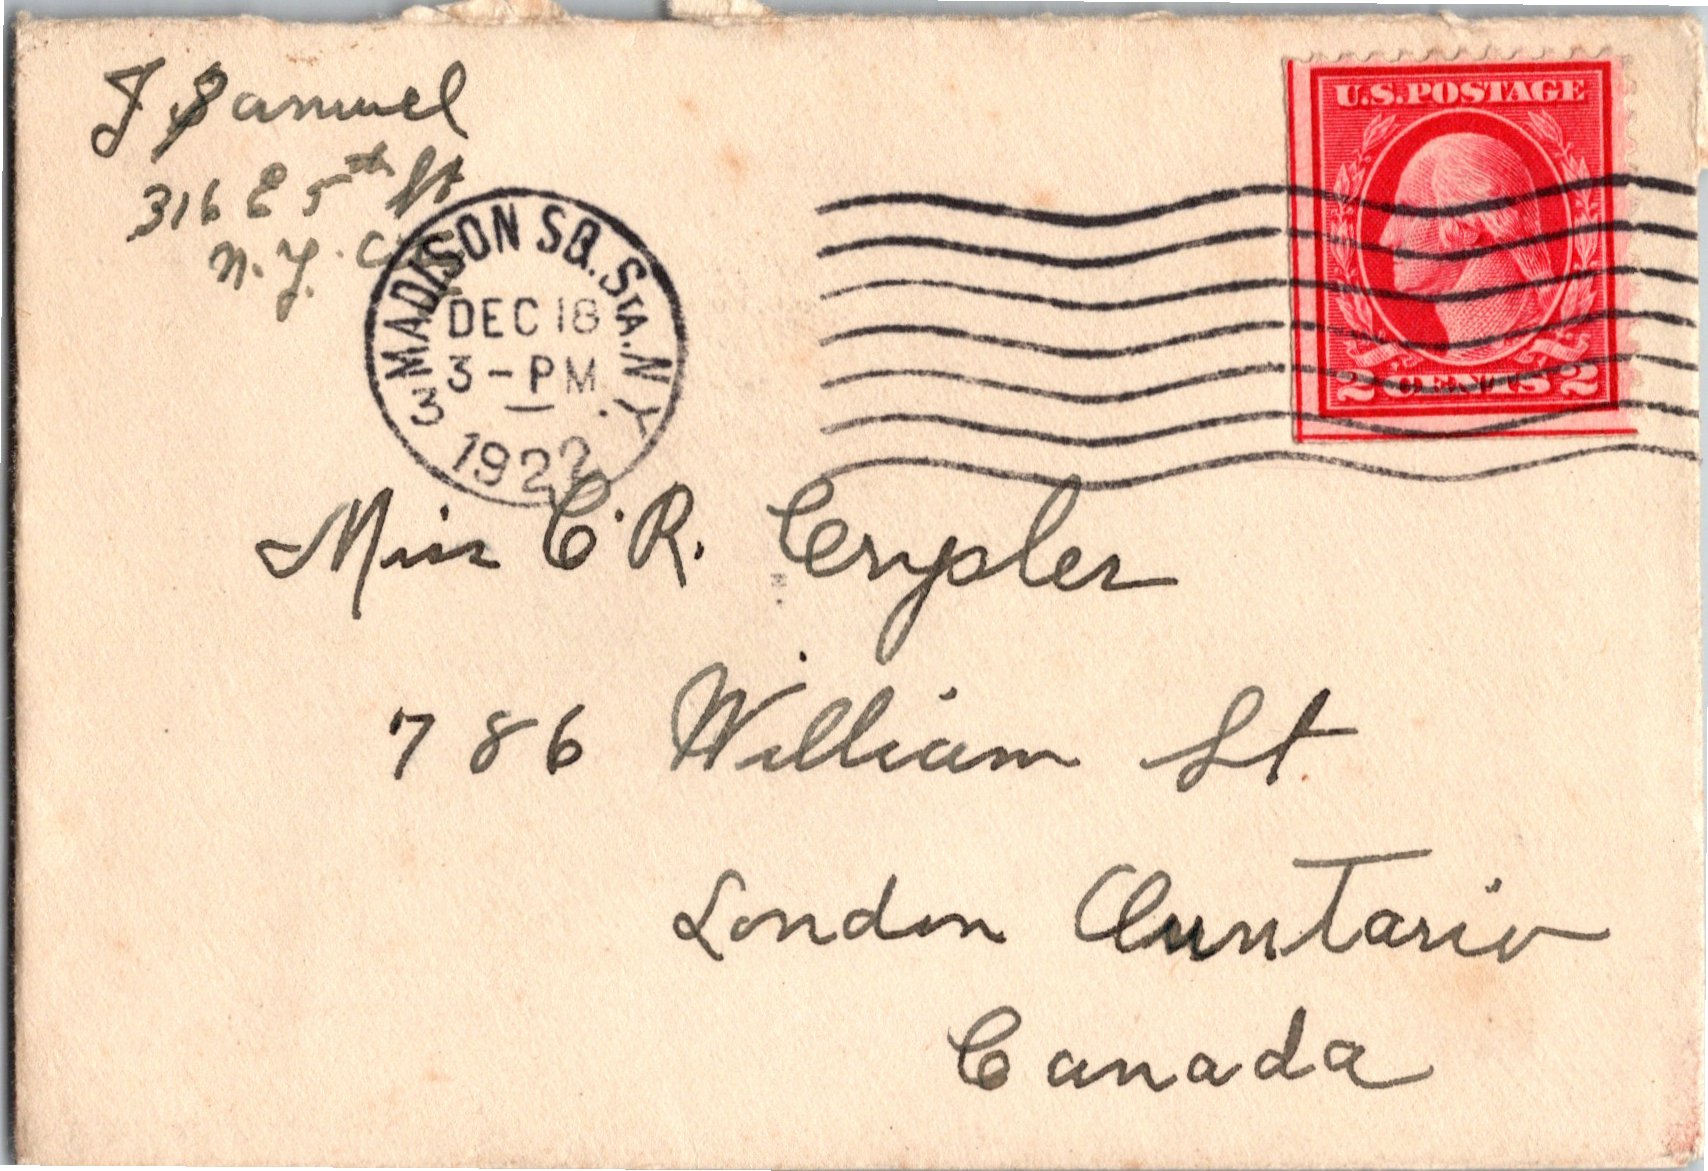 J Samuel
316 E 5th St
N.Y. C
MADISON SQ. STA. N.Y.
DEC 18
3-PM
3
1922
U.S. POSTAGE
2 CENTS 2
Miss C. R. Crysler
786 William St.
London Ountario
Canada